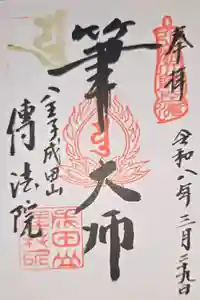 奉拝
令和八年三月二九日
筆大師
八王子成田山
傳法院